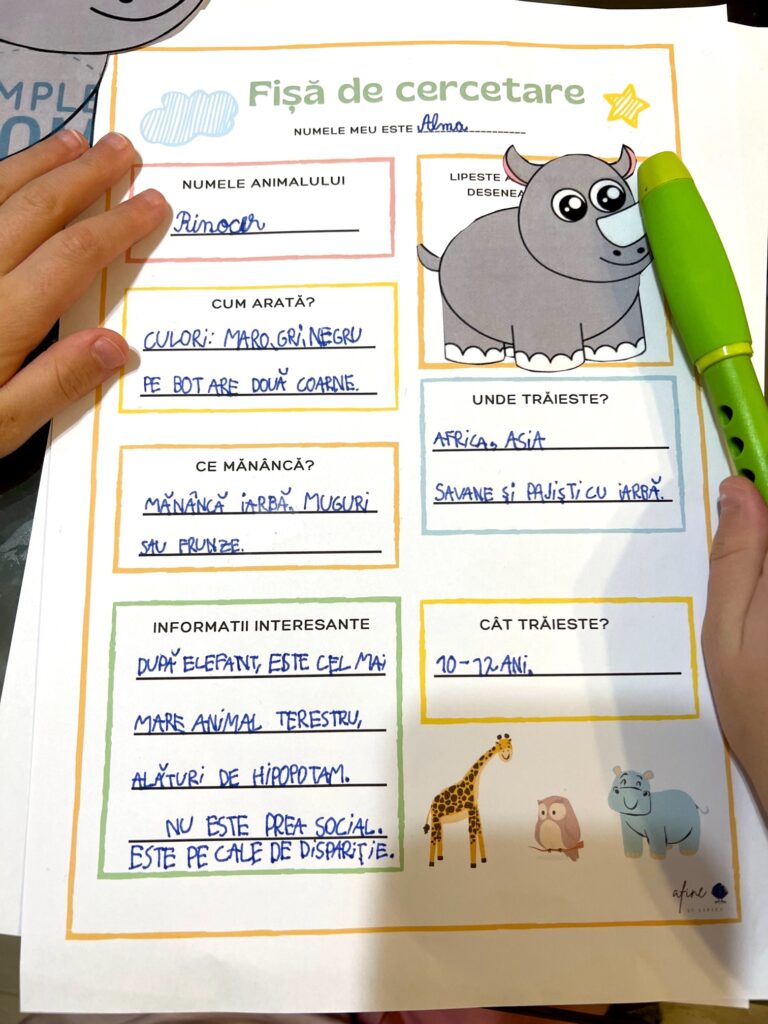 MPLE
Fișă de cercetare
NUMELE MEU ESTE Alma
NUMELE ANIMALULUI
Rinocer
LIPESTE
DESENEA
CUM ARATĂ?
CULORI: MARO, GRI, NEGRU
PE BOT ARE DOUĂ COARNE.
UNDE TRĂIESTE?
AFRICA, ASIA
SAVANE ȘI PAJIȘTI CU IARBĂ.
CE MĂNÂNCĂ?
MĂNÂNCĂ IARBĂ, MUGURI
SAU FRUNZE.
INFORMATII INTERESANTE
DUPĂ ELEFANT, ESTE CEL MAI
MARE ANIMAL TERESTRU,
ALĂTURI DE HIPOPOTAM.
NU ESTE PREA SOCIAL.
ESTE PE CALE DE DISPARIȚIE.
CÂT TRĂIESTE?
10-12 ANI.
afine